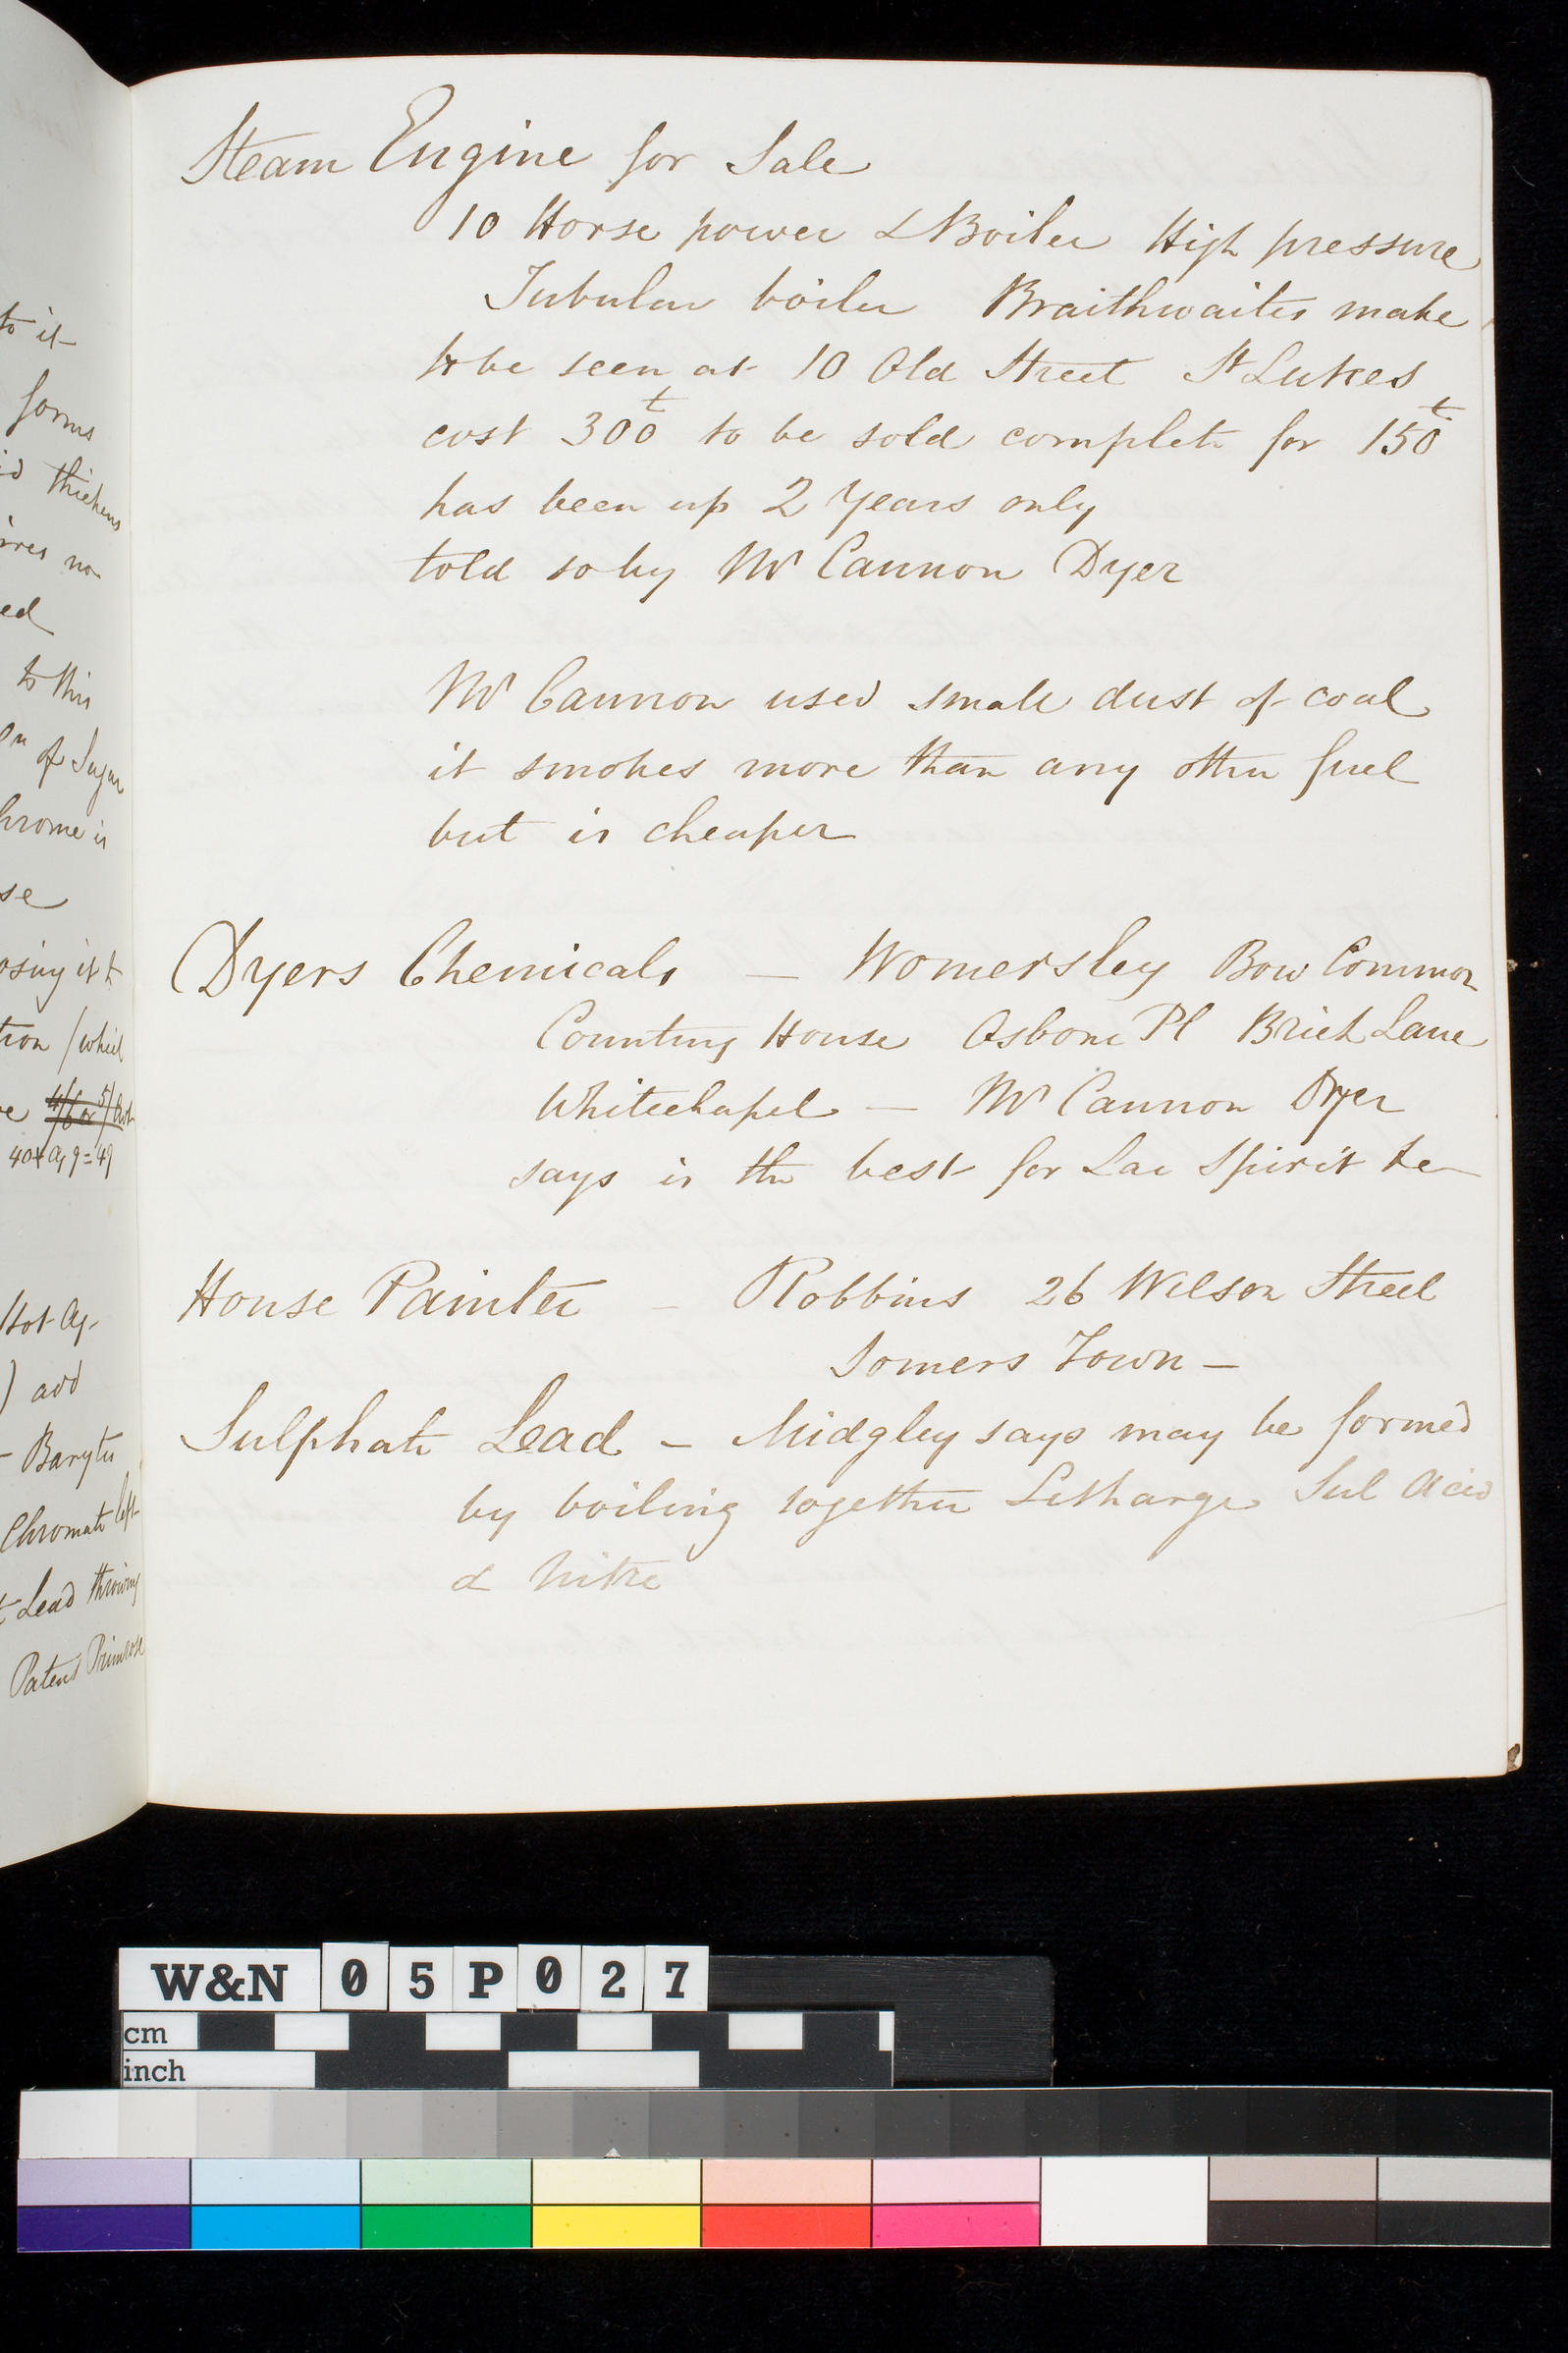 to it
forms
thickens
no
ed
to this
of Sugar
hrome is
se
osing it t
tion (which
40 + 9 = 49
Hot Aq
) add
Barytes
Chromate left
Lead throwing
Patent Primrose
Steam Engine for Sale
10 Horse power & Boiler High pressure
Tubular boiler Braithwaites make
to be seen at 10 Old Street St Lukes
cost 300£ to be sold complete for 150£
has been up 2 Years only
told so by Mr Cannon Dyer
Mr Cannon used small dust of coal
it smokes more than any other fuel
but is cheaper
Dyers Chemicals — Womersley Bow Common
Counting House Osborne Pl Brick Lane
Whitechapel — Mr Cannon Dyer
says is the best for Lac Spirit &c
House Painter — Robbins 26 Wilson Street
Somers Town —
Sulphate Lead — Midgley says may be formed
by boiling together Litharge Sul Acid
& Nitre
W&N 05P027
cm
inch